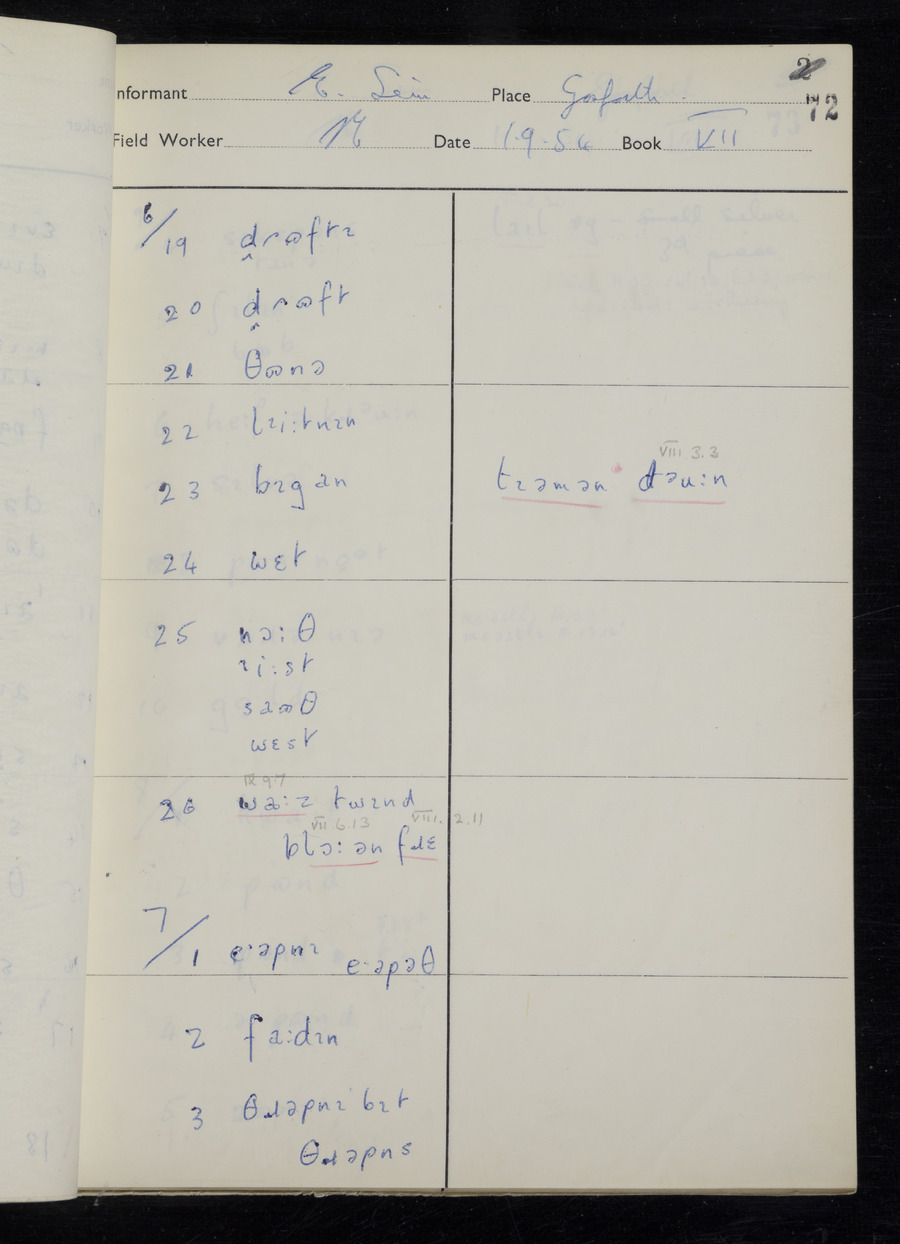 2
72
Informant Place Gosforth
Field Worker Date 11.9.54 Book VII
6/19 drʊftɪ
20 drʊft
21 θʊnə
22 lɪi:tnɪn
23 bɪgan
VIII 3.3
tɪəmən dəu:n
24 wɛt
25 nɔ:θ
ɪi:st
saʊθ
wɛst
IX 9.7
26 twɪnd
VII 6.13 VIII. 2.11
blɔ:ən fɹɛ
7/1 e·əpnɪ e·əpəθ
2 fa:dɪn
3 θɹəpnɪ bɪt
θɹəpns